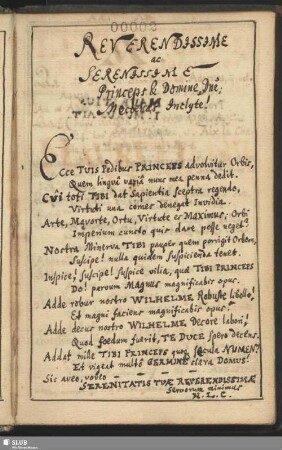 00003
REVERENDISSIME
ac
SERENISSIME
Princeps & Domine, Dne,
Inclyte!
Ecce TUIS Pedibus PRINCEPS advolvitur Orbis,
Quem lingui variū nunc mea penna dedit.
Cui toti TIBI dat Sapientia sceptra regendo,
Virtuti una comes denegat Invidia.
Arte, Mavorte, Ortu, Virtute es MAXIMUS; Orbi
Imperium cuncto quis dare posse neget?
Nostra Minerva TIBI pauper quem porrigit Orbem,
Suscipe! nulla quidem suspicienda tenet.
Inspice, suscipe! suspice vilia, quæ TIBI PRINCEPS
Do! parvum MAGNUS magnificabis opus.
Adde robur nostro WILHELME Robuste libello!
Et magni faciens magnificabis opus.
Adde decus nostro WILHELME Decore labori,
Quod foedum fuerit, TE DUCE spero decens.
Addat mille TIBI PRINCEPS quoq sæcula NUMEN!
Et vigeat multo GERMINE clara DOMUS!
Sic aveo, voveo
SERENITATIS TUÆ REVERENDISSIMÆ
servorum minimus
N. L. C.